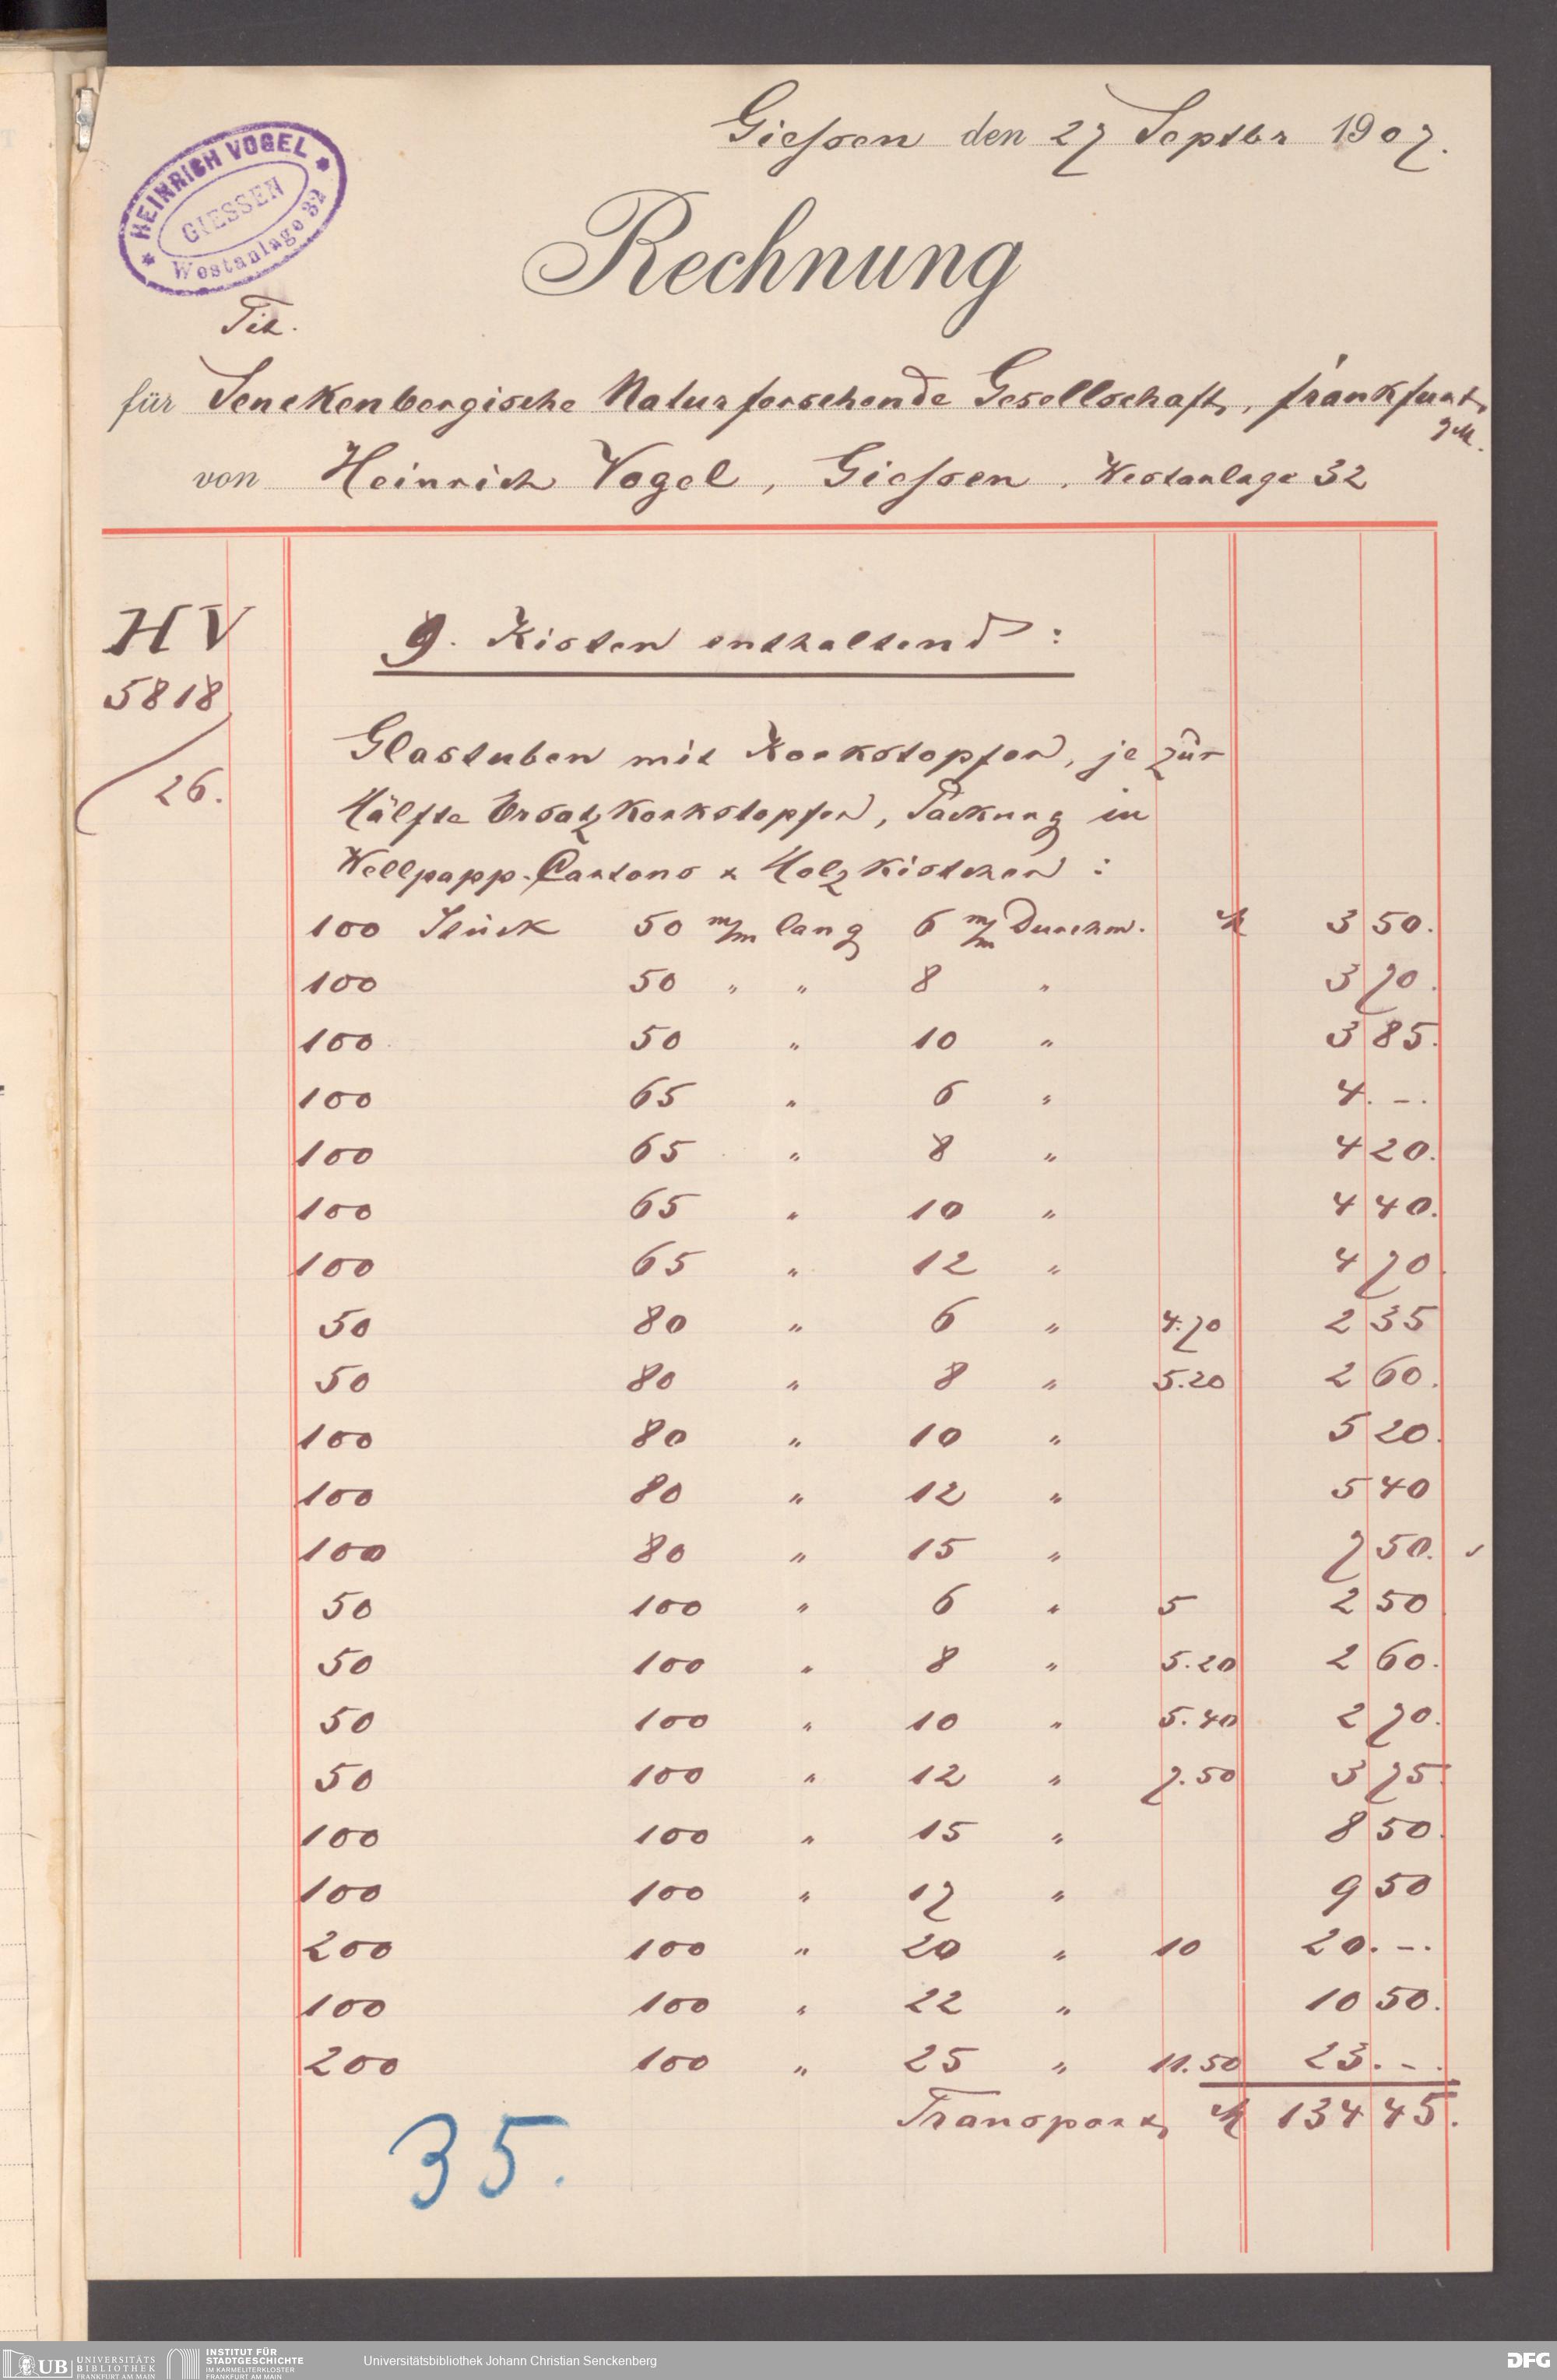 Giessen den 27 Septbr 1907.
HEINRICH VOGEL
GIESSEN
Westanlage 32
Rechnung
Tit.
für Senckenbergische Naturforschende Gesellschaft, Frankfurt
a/M.
von Heinrich Vogel, Giessen, Westanlage 32
HV
5818
/26.
9. Kisten enthaltend:
Glastuben mit Korkstopfen, je zur
Hälfte Ersatzkorkstopfen, Packung in
Wellpapp-Cartons & Holzkistchen:
100 Stück 50 m/m lang 6 m/m Durchm. M 3 50.
100 50 " " 8 " 3 70.
100 50 " 10 " 3 85.
100 65 " 6 " 4. -.
100 65 " 8 " 4 20.
100 65 " 10 " 4 40.
100 65 " 12 " 4 70.
50 80 " 6 " 4.70 2 35
50 80 " 8 " 5.20 2 60.
100 80 " 10 " 5 20.
100 80 " 12 " 5 40
100 80 " 15 " 7 50.
50 100 " 6 " 5 2 50
50 100 " 8 " 5.20 2 60.
50 100 " 10 " 5.40 2 70.
50 100 " 12 " 7.50 3 75.
100 100 " 15 " 8 50.
100 100 " 17 " 9 50
200 100 " 20 " 10 20. -.
100 100 " 22 " 10 50.
200 100 " 25 " 11.50 23. -.
Transport M 134 45.
35.
UB UNIVERSITÄTS
BIBLIOTHEK
FRANKFURT AM MAIN
INSTITUT FÜR
STADTGESCHICHTE
IM KARMELITERKLOSTER
FRANKFURT AM MAIN
Universitätsbibliothek Johann Christian Senckenberg
DFG